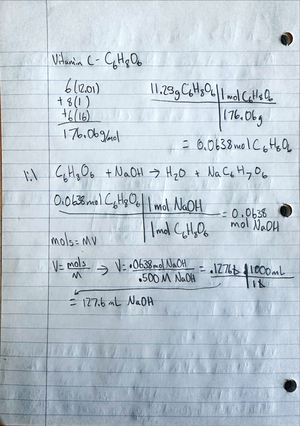 Vitamin C - C₆H₈O₆
6(12.01)
+ 8(1)
+ 6(16)
176.06 g/mol
11.23g C₆H₈O₆ | 1 mol C₆H₈O₆
176.06g
= 0.0638 mol C₆H₈O₆
1:1 C₆H₈O₆ + NaOH → H₂O + NaC₆H₇O₆
0.0638 mol C₆H₈O₆ | 1 mol NaOH
1 mol C₆H₈O₆
= 0.0638 mol NaOH
mols = MV
V = mols/M → V = .0638 mol NaOH/.500 M NaOH = .1276 L | 1000 mL
1 L
= 127.6 mL NaOH